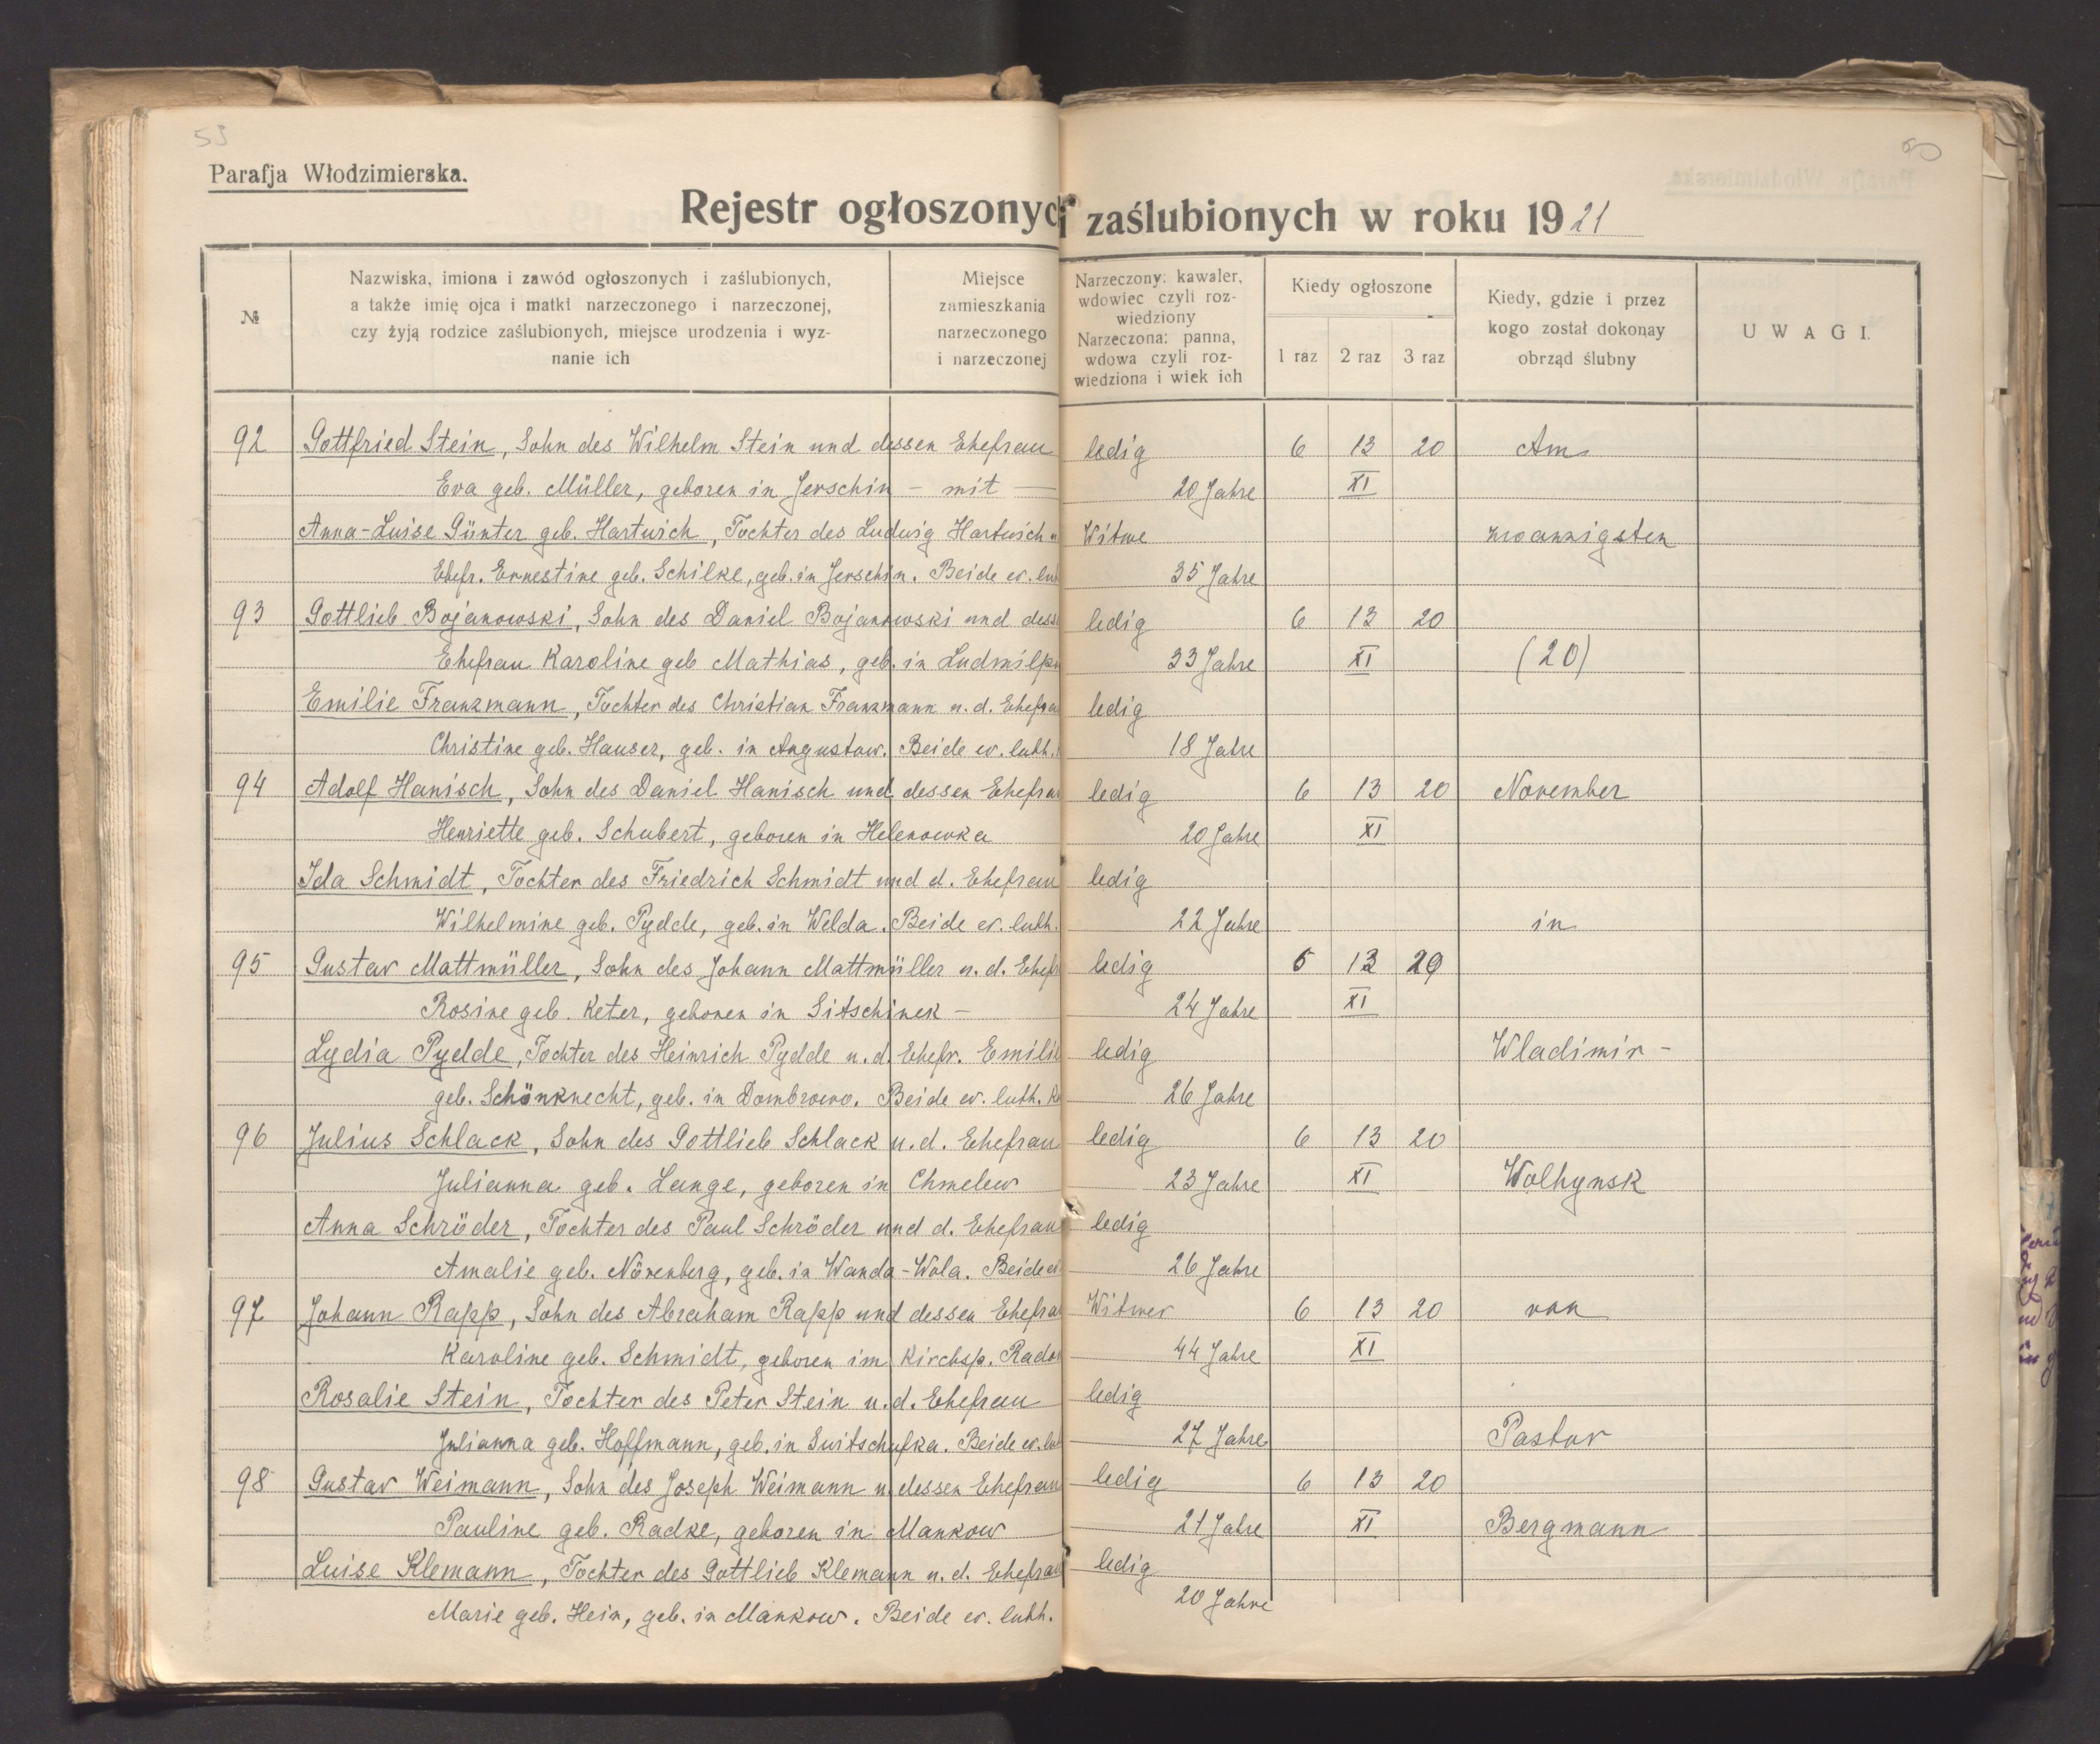 53
Parafja Włodzimierska.
Rejestr ogłoszonyc i zaślubionych w roku 1921
№
Nazwiska, imiona i zawód ogłoszonych i zaślubionych,
a także imię ojca i matki narzeczonego i narzeczonej,
czy żyją rodzice zaślubionych, miejsce urodzenia i wyz-
nanie ich
Miejsce
zamieszkania
narzeczonego
i narzeczonej
Narzeczony: kawaler,
wdowiec czyli roz-
wiedziony
Narzeczona: panna,
wdowa czyli roz-
wiedziona i wiek ich
Kiedy ogłoszone
1 raz 2 raz 3 raz
Kiedy, gdzie i przez
kogo został dokonay
obrząd ślubny
UWAGI.
92 Gottfried Stein, Sohn des Wilhelm Stein und dessen Ehefrau ledig 6 13 20 Am
Eva geb. Müller, geboren in Jerschin – mit — 20 Jahre XI
Anna-Luise Günter geb. Hartwich, Tochter des Ludwig Hartwich u Witwe zwanzigsten
Ehefr. Ernestine geb. Schilke, geb. in Jerschin. Beide ev. lut 35 Jahre
93 Gottlieb Bojanowski, Sohn des Daniel Bojanowski und dess ledig 6 13 20
Ehefrau Karoline geb Mathias, geb. in Ludmilp 33 Jahre XI (20)
Emilie Franzmann, Tochter des Christian Franzmann u. d. Ehefra ledig
Christine geb. Hauser, geb. in Augustow. Beide ev. luth. 18 Jahre
94 Adolf Hanisch, Sohn des Daniel Hanisch und dessen Ehefra ledig 6 13 20 November
Henriette geb. Schubert, geboren in Helenowka 20 Jahre XI
Ida Schmidt, Tochter des Friedrich Schmidt und d. Ehefrau ledig
Wilhelmine geb. Pydde, geb. in Welda. Beide ev. luth. 22 Jahre in
95 Gustav Mattmüller, Sohn des Johann Mattmüller u. d. Ehefr ledig 6 13 20
Rosine geb. Keter, geboren in Sitschinek – 24 Jahre XI
Lydia Pydde, Tochter des Heinrich Pydde u. d. Ehefr. Emilie ledig Wladimir –
geb. Schönknecht, geb. in Dombrowo. Beide ev. luth. K 26 Jahre
96 Julius Schlack, Sohn des Gottlieb Schlack u. d. Ehefrau ledig 6 13 20
Julianna geb. Lange, geboren in Chmelew 23 Jahre XI Wolhynsk
Anna Schröder, Tochter des Paul Schröder und d. Ehefrau ledig
Amalie geb. Nörenberg, geb. in Wanda-Wola. Beide ev 26 Jahre
97 Johann Rapp, Sohn des Abraham Rapp und dessen Ehefra Witwer 6 13 20 von
Karoline geb. Schmidt, geboren im Kirchsp. Rado 44 Jahre XI
Rosalie Stein, Tochter des Peter Stein u. d. Ehefrau ledig
Julianna geb. Hoffmann, geb. in Switschufka. Beide ev. lut 27 Jahre Pastor
98 Gustav Weimann, Sohn des Joseph Weimann u. dessen Ehefrau ledig 6 13 20
Pauline geb. Radke, geboren in Mankow 21 Jahre XI Bergmann
Luise Klemann, Tochter des Gottlieb Klemann u. d. Ehefrau ledig
Marie geb. Hein, geb. in Mankow. Beide ev. luth. 20 Jahre